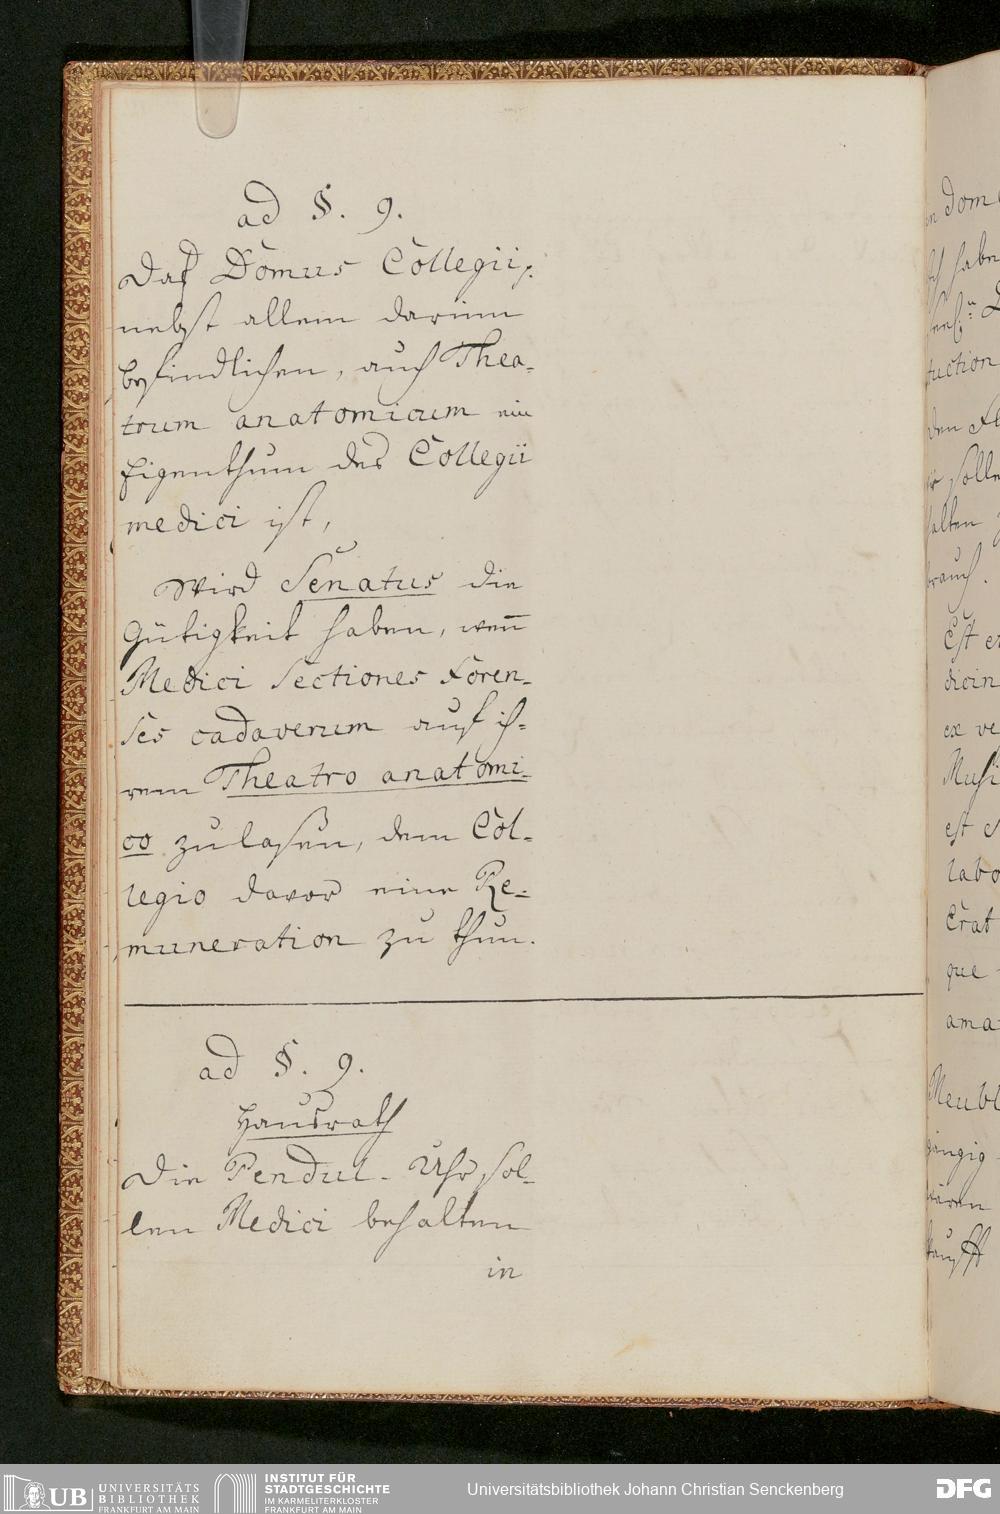 ad §. 9.
Daß Domus Collegii,
nebst allem darinn
befindlichen, auch Thea-
trum anatomicum ein
Eigenthum des Collegii
medici ist,
Wird Senatus die
Gütigkeit haben, wen̄
Medici Sectiones Foren-
ses cadaverum auf ih-
rem Theatro anatomi-
co zulaßen, dem Col-
legio davor eine Re-
muneration zu thun.
ad §. 9.
Hausrath
Die Pendul-Uhr sol-
len Medici behalten
in
den
solle
halten
brauch.
Est
dicin
ex ve
Musi
est
labo
Erat
que
ama
Meubl
gängig
wären
kaufft
UB UNIVERSITÄTS
BIBLIOTHEK
FRANKFURT AM MAIN
INSTITUT FÜR
STADTGESCHICHTE
IM KARMELITERKLOSTER
FRANKFURT AM MAIN
Universitätsbibliothek Johann Christian Senckenberg
DFG